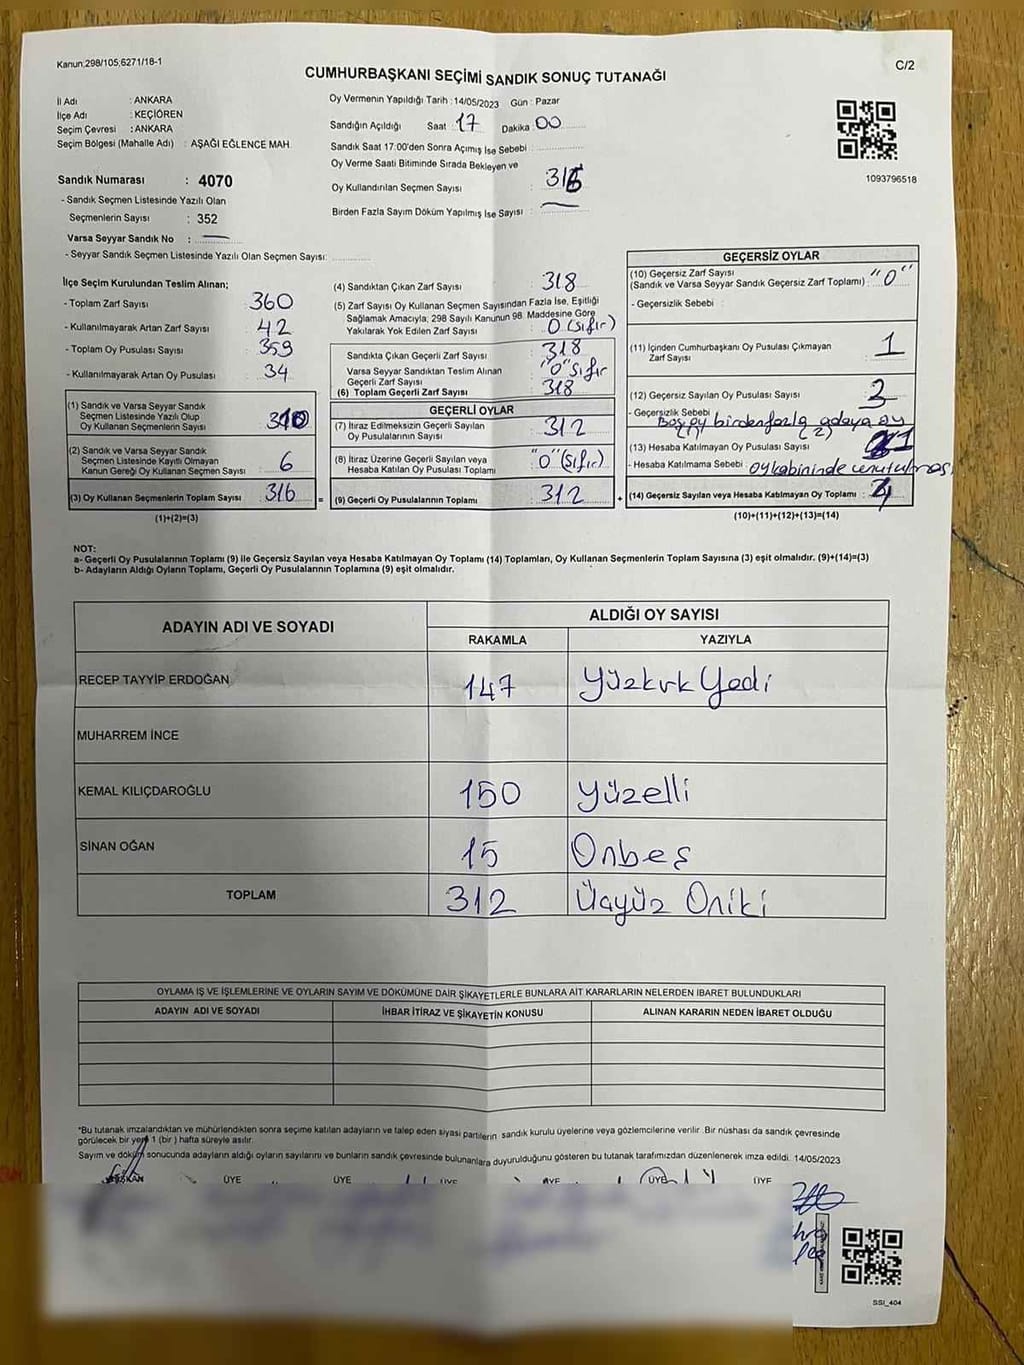 Kanun;298/105;6271/18-1
C/2
CUMHURBAŞKANI SEÇİMİ SANDIK SONUÇ TUTANAĞI
İl Adı : ANKARA
İlçe Adı : KEÇİÖREN
Seçim Çevresi : ANKARA
Seçim Bölgesi (Mahalle Adı) : AŞAĞI EĞLENCE MAH.
Sandık Numarası : 4070
- Sandık Seçmen Listesinde Yazılı Olan
Seçmenlerin Sayısı : 352
Varsa Seyyar Sandık No :
- Seyyar Sandık Seçmen Listesinde Yazılı Olan Seçmen Sayısı:
Oy Vermenin Yapıldığı Tarih : 14/05/2023 Gün : Pazar
Sandığın Açıldığı Saat : 17 Dakika : 00
Sandık Saat 17:00'den Sonra Açımış İse Sebebi :
Oy Verme Saati Bitiminde Sırada Bekleyen ve
Oy Kullandırılan Seçmen Sayısı : 316
Birden Fazla Sayım Döküm Yapılmış İse Sayısı :
1093796518
İlçe Seçim Kurulundan Teslim Alınan;
- Toplam Zarf Sayısı : 360
- Kullanılmayarak Artan Zarf Sayısı : 42
- Toplam Oy Pusulası Sayısı : 359
- Kullanılmayarak Artan Oy Pusulası : 34
(1) Sandık ve Varsa Seyyar Sandık
Seçmen Listesinde Yazılı Olup
Oy Kullanan Seçmenlerin Sayısı : 310
(2) Sandık ve Varsa Seyyar Sandık
Seçmen Listesinde Kayıtlı Olmayan
Kanun Gereği Oy Kullanan Seçmen Sayısı : 6
(3) Oy Kullanan Seçmenlerin Toplam Sayısı : 316 =
(1)+(2)=(3)
(4) Sandıktan Çıkan Zarf Sayısı : 318
(5) Zarf Sayısı Oy Kullanan Seçmen Sayısından Fazla İse, Eşitliği
Sağlamak Amacıyla; 298 Sayılı Kanunun 98. Maddesine Göre
Yakılarak Yok Edilen Zarf Sayısı : 0 (sıfır)
Sandıkta Çıkan Geçerli Zarf Sayısı : 318
Varsa Seyyar Sandıktan Teslim Alınan
Geçerli Zarf Sayısı : "0" sıfır
(6) Toplam Geçerli Zarf Sayısı : 318
GEÇERLİ OYLAR
(7) İtiraz Edilmeksizin Geçerli Sayılan
Oy Pusulalarının Sayısı : 312
(8) İtiraz Üzerine Geçerli Sayılan veya
Hesaba Katılan Oy Pusulası Toplamı : "0" (sıfır)
(9) Geçerli Oy Pusulalarının Toplamı : 312 +
GEÇERSİZ OYLAR
(10) Geçersiz Zarf Sayısı
(Sandık ve Varsa Seyyar Sandık Geçersiz Zarf Toplamı) : "0"
- Geçersizlik Sebebi :
(11) İçinden Cumhurbaşkanı Oy Pusulası Çıkmayan
Zarf Sayısı : 1
(12) Geçersiz Sayılan Oy Pusulası Sayısı : 3
- Geçersizlik Sebebi : Boş oy birden fazla adaya oy
(1) (2)
(13) Hesaba Katılmayan Oy Pusulası Sayısı : 1
- Hesaba Katılmama Sebebi : oy kabininde unutulması
(14) Geçersiz Sayılan veya Hesaba Katılmayan Oy Toplamı :
(10)+(11)+(12)+(13)=(14)
NOT:
a- Geçerli Oy Pusulalarının Toplamı (9) ile Geçersiz Sayılan veya Hesaba Katılmayan Oy Toplamı (14) Toplamları, Oy Kullanan Seçmenlerin Toplam Sayısına (3) eşit olmalıdır. (9)+(14)=(3)
b- Adayların Aldığı Oyların Toplamı, Geçerli Oy Pusulalarının Toplamına (9) eşit olmalıdır.
ADAYIN ADI VE SOYADI ALDIĞI OY SAYISI
RAKAMLA YAZIYLA
RECEP TAYYİP ERDOĞAN 147 Yüzkırk Yedi
MUHARREM İNCE
KEMAL KILIÇDAROĞLU 150 Yüzelli
SİNAN OĞAN 15 Onbeş
TOPLAM 312 Üçyüz Oniki
OYLAMA İŞ VE İŞLEMLERİNE VE OYLARIN SAYIM VE DÖKÜMÜNE DAİR ŞİKAYETLERLE BUNLARA AİT KARARLARIN NELERDEN İBARET BULUNDUKLARI
ADAYIN ADI VE SOYADI İHBAR İTİRAZ VE ŞİKAYETİN KONUSU ALINAN KARARIN NEDEN İBARET OLDUĞU
*Bu tutanak imzalandıktan ve mühürlendikten sonra seçime katılan adayların ve talep eden siyasi partilerin sandık kurulu üyelerine veya gözlemcilerine verilir. Bir nüshası da sandık çevresinde
görülecek bir yere 1 (bir) hafta süreyle asılır.
Sayım ve döküm sonucunda adayların aldığı oyların sayılarını ve bunların sandık çevresinde bulunanlara duyurulduğunu gösteren bu tutanak tarafımızdan düzenlenerek imza edildi. 14/05/2023
BAŞKAN ÜYE ÜYE ÜYE ÜYE ÜYE ÜYE
SSI_404